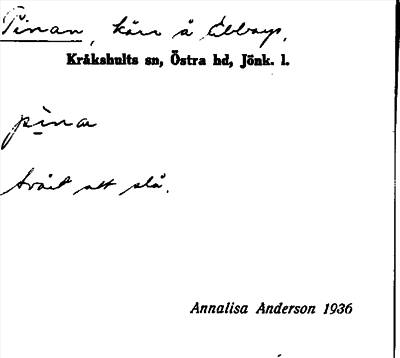 Pinan, kärr å Ebbarps.
Kråkshults sn, Östra hd, Jönk. l.
pina
Svårt att slå.
Annalisa Anderson 1936